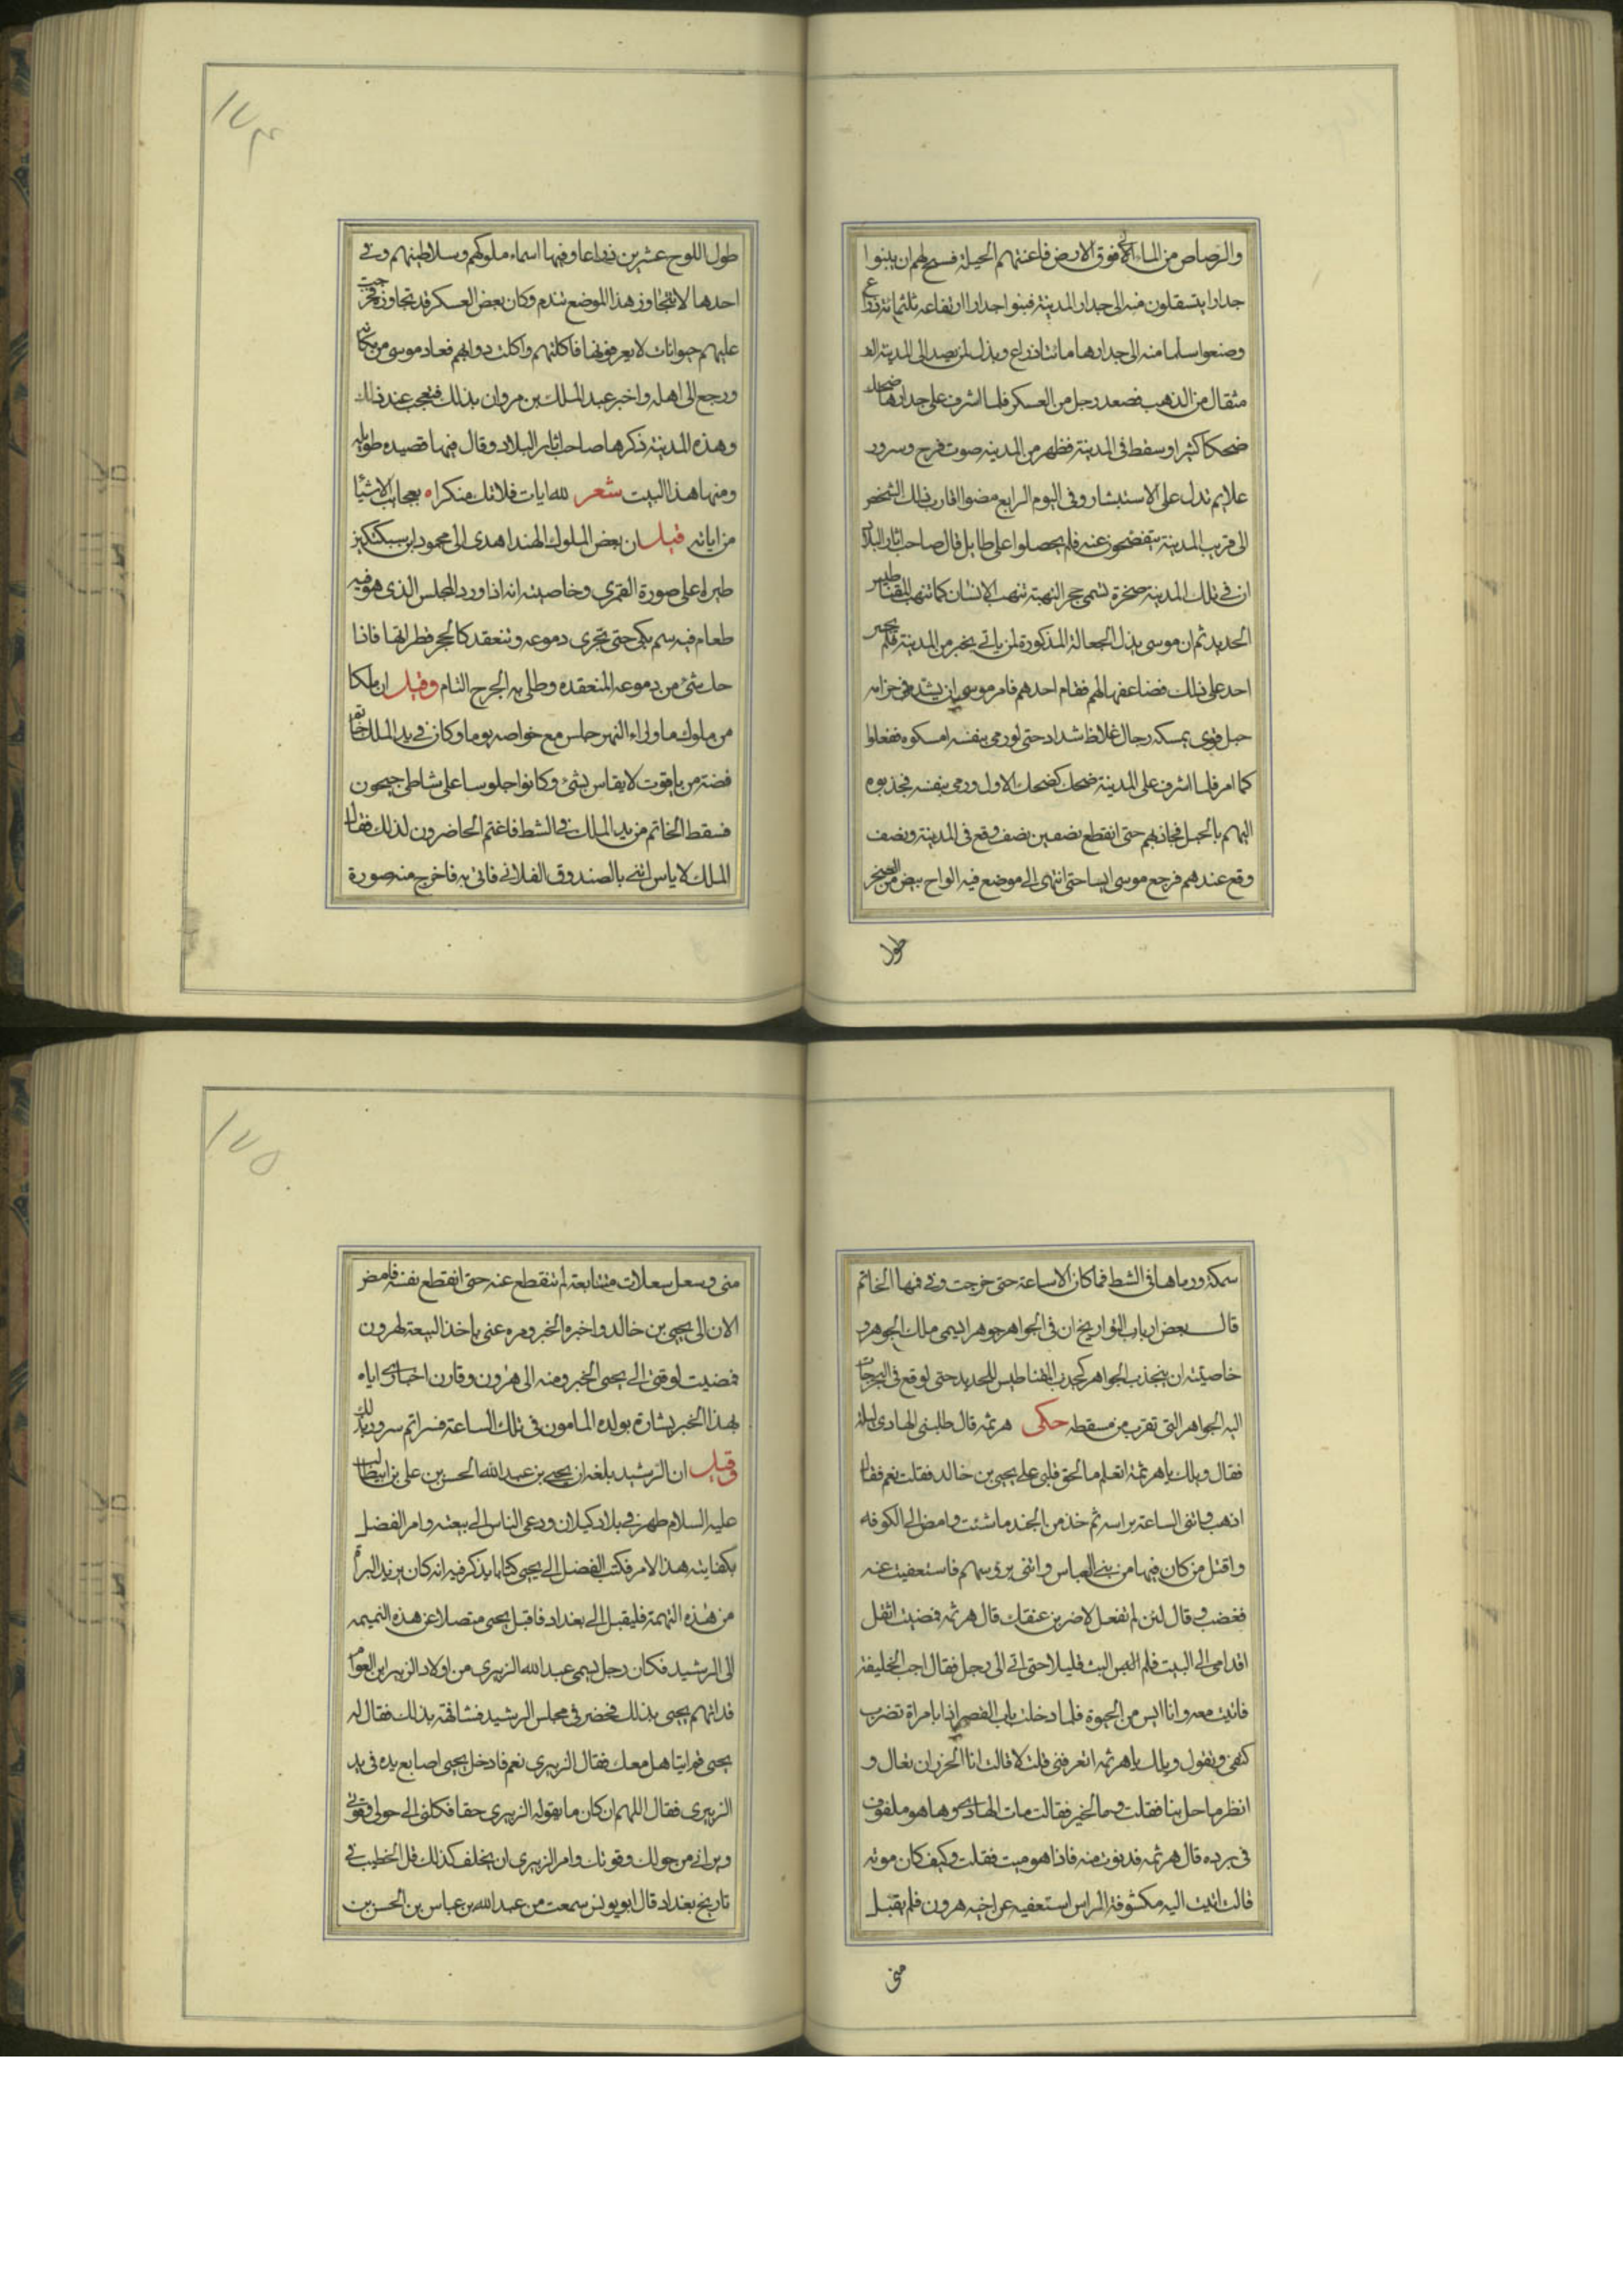 والرصاص من الماء الى فوق الارض فاعنتهم الحيلة فسنح لهم ان يبنوا
جدارا يتسقلون منه الى جدار المدينة فبنوا جدارا ارتفاعه ثلثمائة ذراع
وصنعوا سلما منه الى جدارها مائتا ذراع وبذل لمن يصعد الى المدينة الف
مثقال من الذهب فصعد رجل من العسكر فلما اشرف على جدارها ضحك
ضحكا كثيرا وسقط فى المدينة فظهر من المدينه صوت فرح وسرور
علايم تدل على الاستبشار وفى اليوم الرابع مضوا اقارب ذلك الشخص
الى قريب المدينة يتفضحون عنه فلم يحصلوا على طايل قال صاحب اثار البلاد
ان فى تلك المدينة صخرة تسمى حجر النهبة تنهب الانسان كما تنهب المقناطيس
الحديد ثم ان موسى بذل الجعالة المذكورة لمن ياتى بخبر من المدينة فلم يجسر
احد على ذلك فضاعفها لهم فقام احدهم فامر موسى ان يشد فى حزامه
حبل قوى يمسكه رجال غلاظ شداد حتى لو رمى بنفسه امسكوه ففعلوا
كما امر فلما اشرف على المدينة ضحك كضحك الاول ورمى بنفسه فجذبوه
اليهم بالحبل فجاذبهم حتى انقطع نصفين نصف وقع فى المدينة ونصف
وقع عندهم فرجع موسى ايسا حتى انتهى الى موضع فيه الواح بيض من الصخر
طول
١٧٤
طول اللوح عشرين ذراعا وفيها اسماء ملوكهم وسلاطينهم وفى
احدها لا تتجاوز هذا الموضع تندم وكان بعض العسكر قد تجاوز فخرجت
عليهم حيوانات لا يعرفونها فاكلتهم واكلت دوابهم فعاد موسى من مكانه
ورجع الى اهله واخبر عبد الملك بن مروان بذلك فتعجب عند ذلك
وهذه المدينة ذكرها صاحب اثار البلاد وقال فيها قصيده طويله
ومنها هذا البيت شعر لله ايات فلا تك منكرا ه بعجايب الاشيا
من اياته قيل ان بعض الملوك الهند اهدى الى محمود ابن سبكتكين
طيرا على صورة القمرى وخاصيته انه اذا ورد المجلس الذى هو فيه
طعام فيه سم بكى حتى تجرى دموعه وتنعقد كالحجر قطراتها فاذا
حك شئ من دموعه المنعقده وطلى به الجرح التام وقيل ان ملكا
من ملوك ماوراء النهر جلس مع خواصه يوما وكان فى يد الملك خاتم
فضة من ياقوت لا يقاس بشئ وكانوا جلوسا على شاطى جيحون
فسقط الخاتم من يد الملك فى الشط فاغتم الحاضرون لذلك فقال
الملك لا باس ائتنى بالصندوق الفلانى فاتى به فاخرج منه صورة
سمكة ورماها فى الشط فما كان الا ساعة حتى خرجت وفى فمها الخاتم
قال بعض ارباب التواريخ ان فى الجواهر جوهرا يسمى ملك الجوهر و
خاصيته ان ينجذب الجواهر كجذب المقناطيس للحديد حتى لو وقع فى
اليه الجواهر التى تقرب من مسقطه حكى هرثمه قال طلبنى الهادى ليلة
فقال ويلك يا هرثمة اتعلم ما لحق قلبى على يحيى بن خالد فقلت نعم فقال
اذهب واتنى الساعة براسه ثم خذ من الجند ما شئت وامض الى الكوفه
واقتل من كان فيها من بنى العباس واتنى برؤسهم فاستعفيت عنه
فغضب وقال لئن لم تفعل لاضربن عنقك قال هرثمه فمضيت اثقل
اقدامى الى البيت فلم البث قليلا حتى اتى الى رجل فقال اجب الخليفة
فاتيت معه وانا ايس من الحيوة فلما دخلت باب القصر اذا بامراة تضرب
كتفى وتقول ويلك يا هرثمه اتعرفنى قلت لا قالت انا الخيزران تعال و
انظر ما حل بنا فقلت وما الخبر فقالت مات الهادى وها هو ملفوف
فى برده قال هرثمه فدنوت منه فاذا هو ميت فقلت وكيف كان موته
قالت اتيت اليه مكشوفة الراس استعفيه عن اخيه هرون فلم يقبل
منى
١٧٥
منى وسعل سعلات متتابعة لم تنقطع عنه حتى انقطع نفسه فامض
الان الى يحيى بن خالد واخبره الخبر ومره عنى ياخذ البيعة لهرون
فمضيت لوقتى الى يحيى الخبر ومنه الى هرون وقارن اخبارى اياه
بهذا الخبر بشارة بولده المامون فى تلك الساعة فسر اتم سرور بذلك
وقيل ان الرشيد بلغه ان يحيى بن عبد الله الحسن بن على بن ابيطالب
عليه السلام ظهر فى بلاد كيلان ودعى الناس الى بيعته وامر الفضل
بكفايته هذا الامر فكتب الفضل الى يحيى كتابا يذكر فيه انه كان يريد البراة
من هذه التهمة فليقبل الى بغداد فاقبل يحيى متصلا عن هذه النميمه
الى الرشيد فكان رجل يسمى عبد الله الزبيرى من اولاد الزبير ابن العوام
قد اتهم يحيى بذلك فحضر فى مجلس الرشيد فشافهه بذلك فقال له
يحيى فم ايتاهل معك فقال الزبيرى نعم فادخل يحيى اصابع يده فى يد
الزبيرى فقال اللهم ان كان ما يقوله الزبيرى حقا فكلنى الى حولى وقوتى
وبرانى من حولك وقوتك وامر الزبيرى ان يحلف كذلك قال الخطيب فى
تاريخ بغداد قال ابو يونس سمعت من عبد الله بن عباس بن الحسن بن